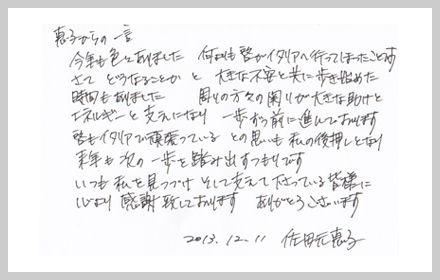 恵子からの一言
今年も色々ありました 何よりも啓がイタリアへ行ってしまったことです
さて どうなることか と 大きな不安と共に歩き始めた
時間もありました 周りの方々の関りが大きな助けと
エネルギーと支えになり 一歩ずつ前に進んでおります
啓もイタリアで頑張っている との思いも 私の後押しとなり
来年も 次の一歩を踏み出すつもりです
いつも 私を見つづけ そして支えて下さっている皆様に
心より 感謝致しております ありがとうございます
2013.12.11 佐田元恵子